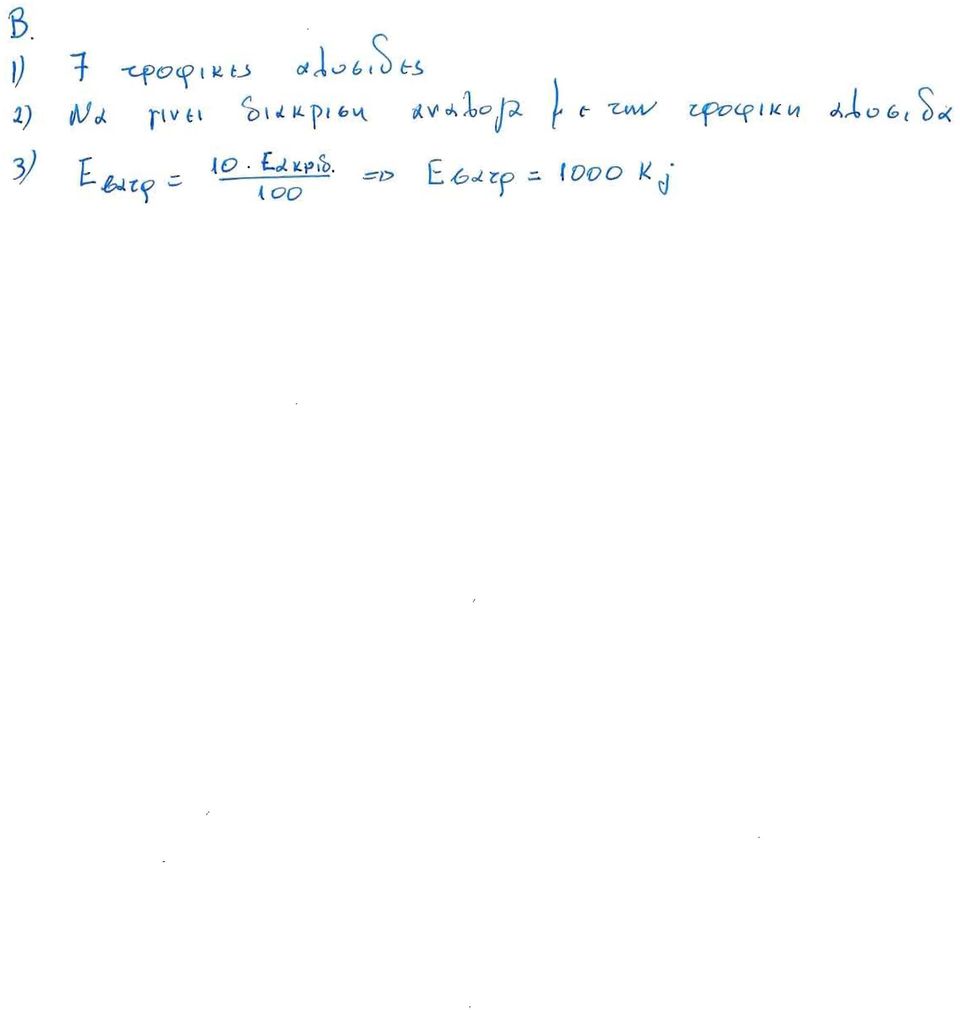 Β.
1) 7 τροφικες αλυσιδες
2) Να γινει διακριση αναλογα με την τροφικη αλυσιδα
3) Εβατρ = 10 · Εακριδ. / 100 => Εβατρ = 1000 Kj